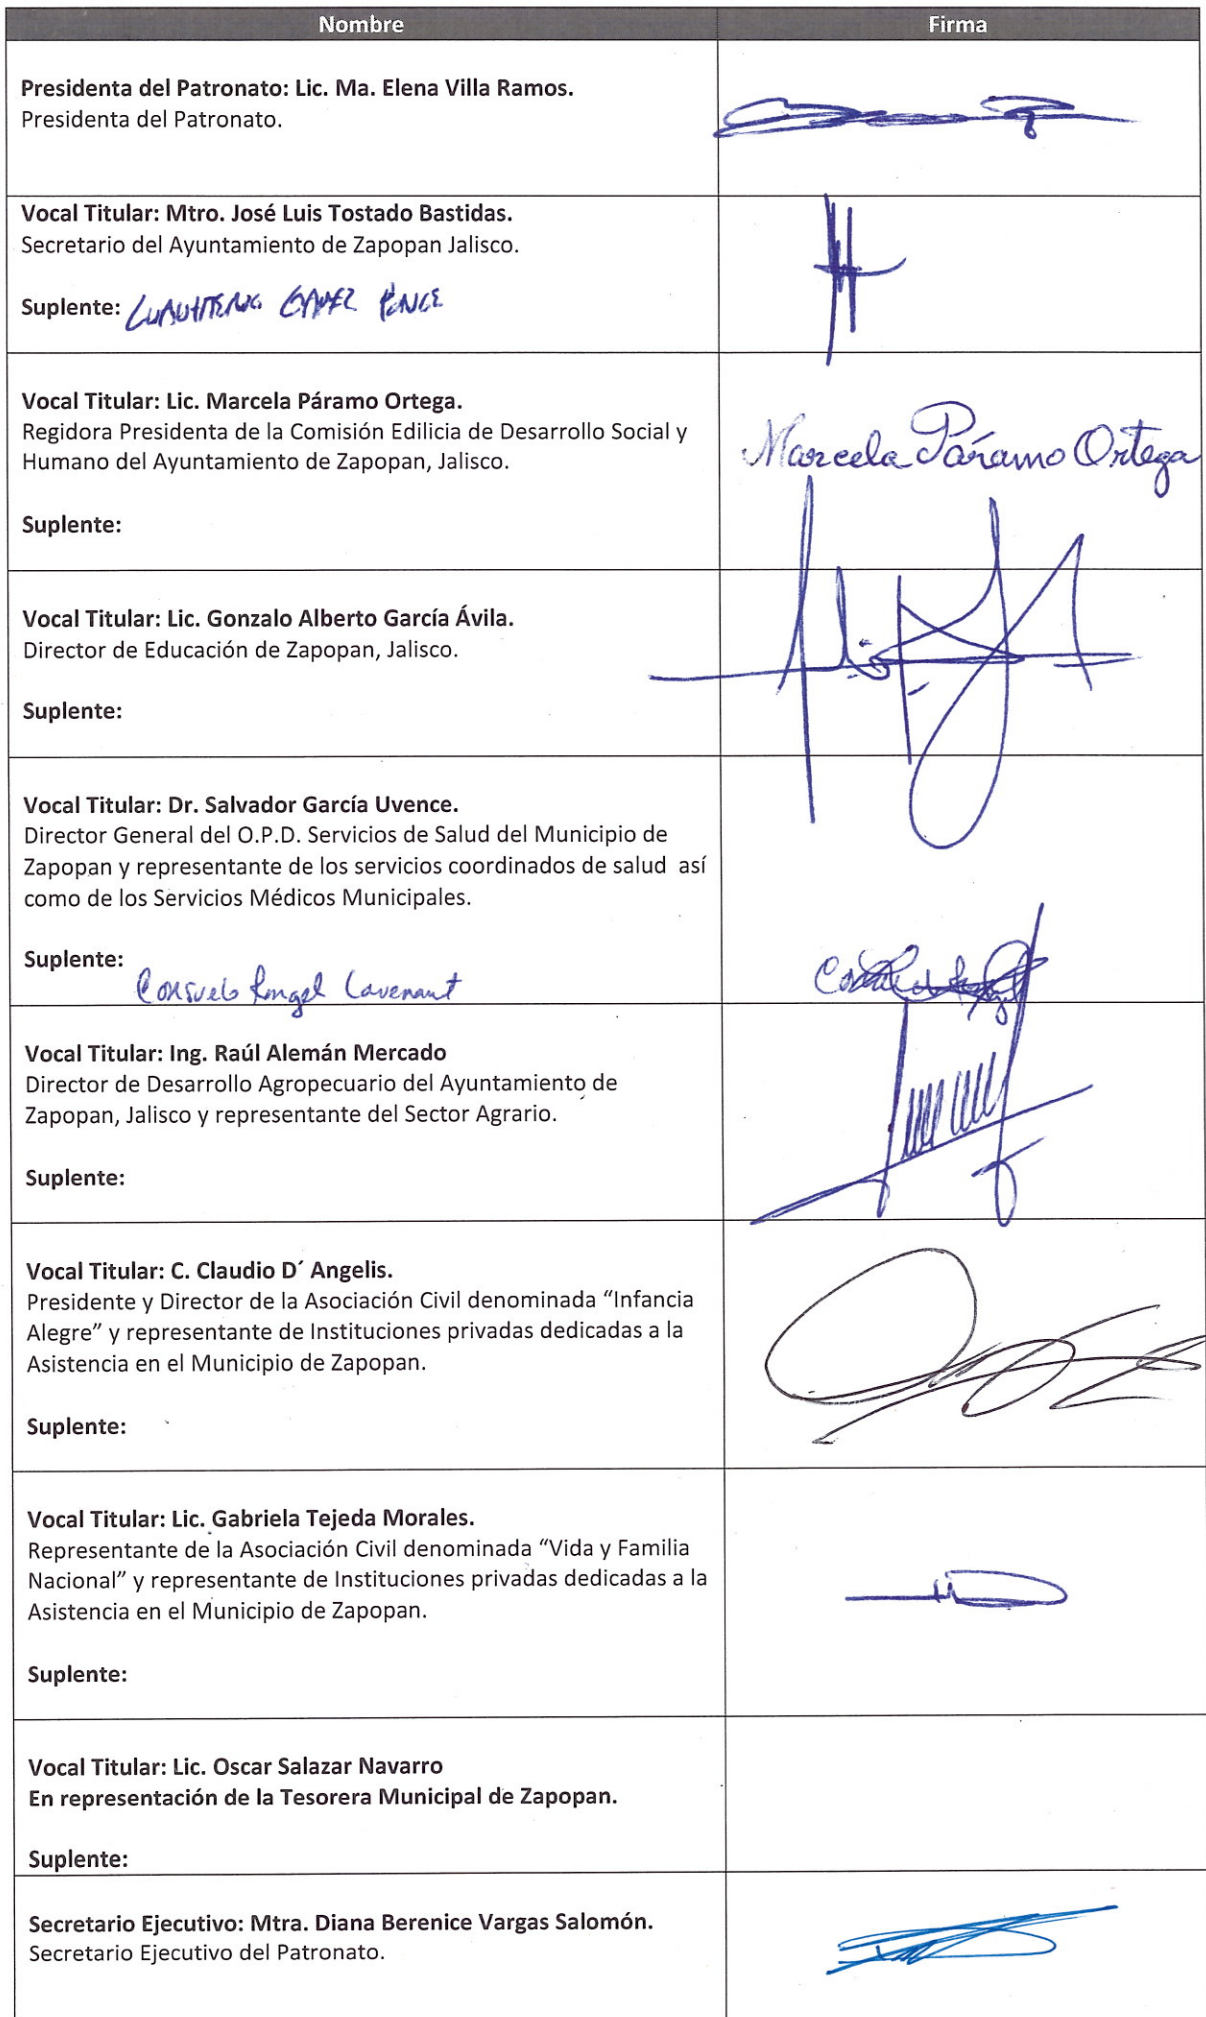 Nombre
Firma
Presidenta del Patronato: Lic. Ma. Elena Villa Ramos.
Presidenta del Patronato.
Vocal Titular: Mtro. José Luis Tostado Bastidas.
Secretario del Ayuntamiento de Zapopan Jalisco.
Suplente:
Vocal Titular: Lic. Marcela Páramo Ortega.
Regidora Presidenta de la Comisión Edilicia de Desarrollo Social y
Humano del Ayuntamiento de Zapopan, Jalisco.
Marcela Páramo Ortega
Suplente:
Vocal Titular: Lic. Gonzalo Alberto García Ávila.
Director de Educación de Zapopan, Jalisco.
Suplente:
Vocal Titular: Dr. Salvador García Uvence.
Director General del O.P.D. Servicios de Salud del Municipio de
Zapopan y representante de los servicios coordinados de salud así
como de los Servicios Médicos Municipales.
Suplente:
Consuelo Rangel
Vocal Titular: Ing. Raúl Alemán Mercado
Director de Desarrollo Agropecuario del Ayuntamiento de
Zapopan, Jalisco y representante del Sector Agrario.
Suplente:
Vocal Titular: C. Claudio D´ Angelis.
Presidente y Director de la Asociación Civil denominada “Infancia
Alegre” y representante de Instituciones privadas dedicadas a la
Asistencia en el Municipio de Zapopan.
Suplente:
Vocal Titular: Lic. Gabriela Tejeda Morales.
Representante de la Asociación Civil denominada “Vida y Familia
Nacional” y representante de Instituciones privadas dedicadas a la
Asistencia en el Municipio de Zapopan.
Suplente:
Vocal Titular: Lic. Oscar Salazar Navarro
En representación de la Tesorera Municipal de Zapopan.
Suplente:
Secretario Ejecutivo: Mtra. Diana Berenice Vargas Salomón.
Secretario Ejecutivo del Patronato.